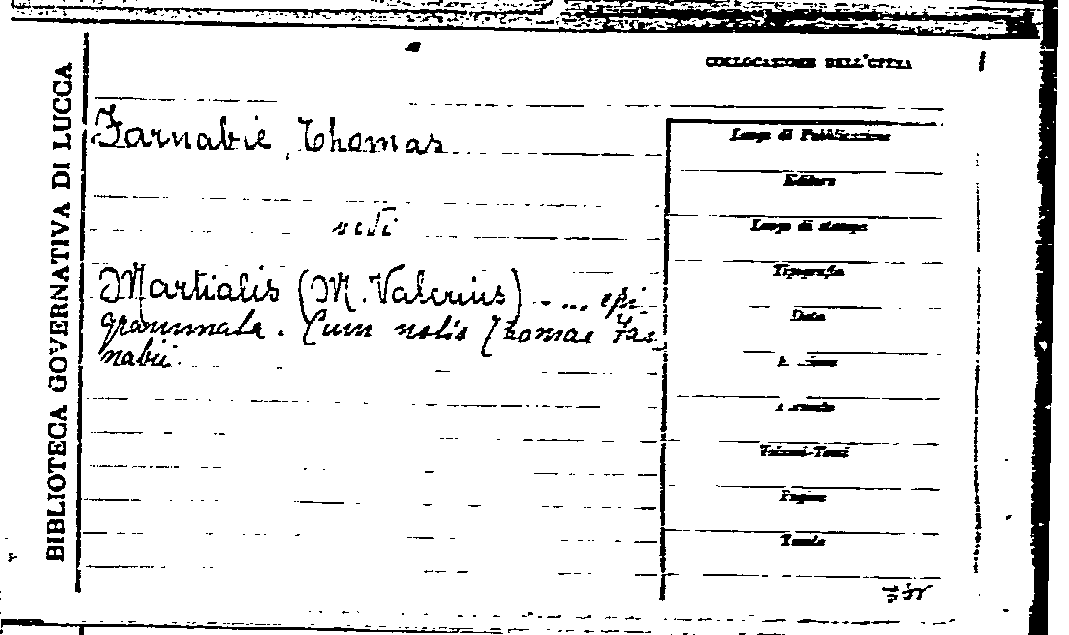 BIBLIOTECA GOVERNATIVA DI LUCCA
COLLOCAZIONE DELL'OPERA
Farnabie, Thomas
vedi
Martialis (M. Valerius) - ... epi-
grammata. Cum notis Thomae Far-
nabii.
Luogo di Pubblicazione
Editore
Luogo di stampa
Tipografia
Data
Formato
Volumi-Tomi
Pagine
Tavole